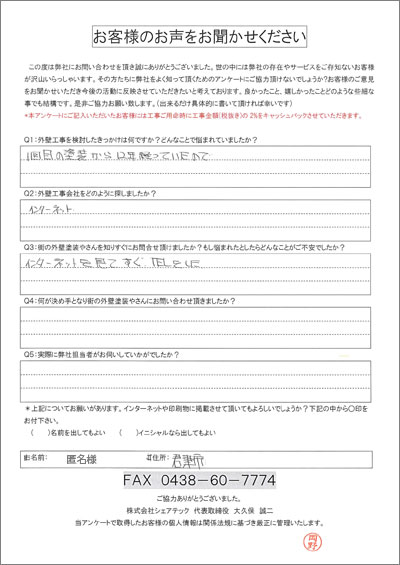 お客様のお声をお聞かせください
この度は弊社にお問い合わせを頂き誠にありがとうございました。世の中には弊社の存在やサービスをご存知ないお客様
が沢山いらっしゃいます。その方たちに弊社をよく知って頂くためのアンケートにご協力頂けないでしょうか?お客様のご意見
をお聞かせいただき今後の活動に反映させていただきたいと考えております。良かったこと、嬉しかったことどのような些細な
事でも結構です。是非ご協力お願い致します。(出来るだけ具体的に書いて頂ければ幸いです)
*本アンケートにご記入いただいたお客様には工事ご用命時に工事金額(税抜き)の 2%をキャッシュバックさせていただきます。
Q1:外壁工事を検討したきっかけは何ですか?どんなことで悩まれていましたか?
1回目の塗装から12年経っていたので
Q2:外壁工事会社をどのように探しましたか?
インターネット
Q3:街の外壁塗装やさんを知りすぐにお問合せ頂けましたか?もし悩まれたとしたらどんなことがご不安でしたか?
インターネットを見てすぐTELをした
Q4:何が決め手となり街の外壁塗装やさんにお問い合わせ頂きましたか?
Q5:実際に弊社担当者がお伺いしていかがでしたか?
*上記についてお願いがあります。インターネットや印刷物に掲載させて頂いてもよろしいでしょうか?下記の中から〇印を
お付下さい。
( )名前を出してもよい ( )イニシャルなら出してもよい
お名前: 匿名様 ご住所: 君津市
FAX 0438-60-7774
ご協力ありがとうございました。
株式会社シェアテック 代表取締役 大久保 誠二
当アンケートで取得したお客様の個人情報は関係法規に基づき厳正に管理いたします。
岡野